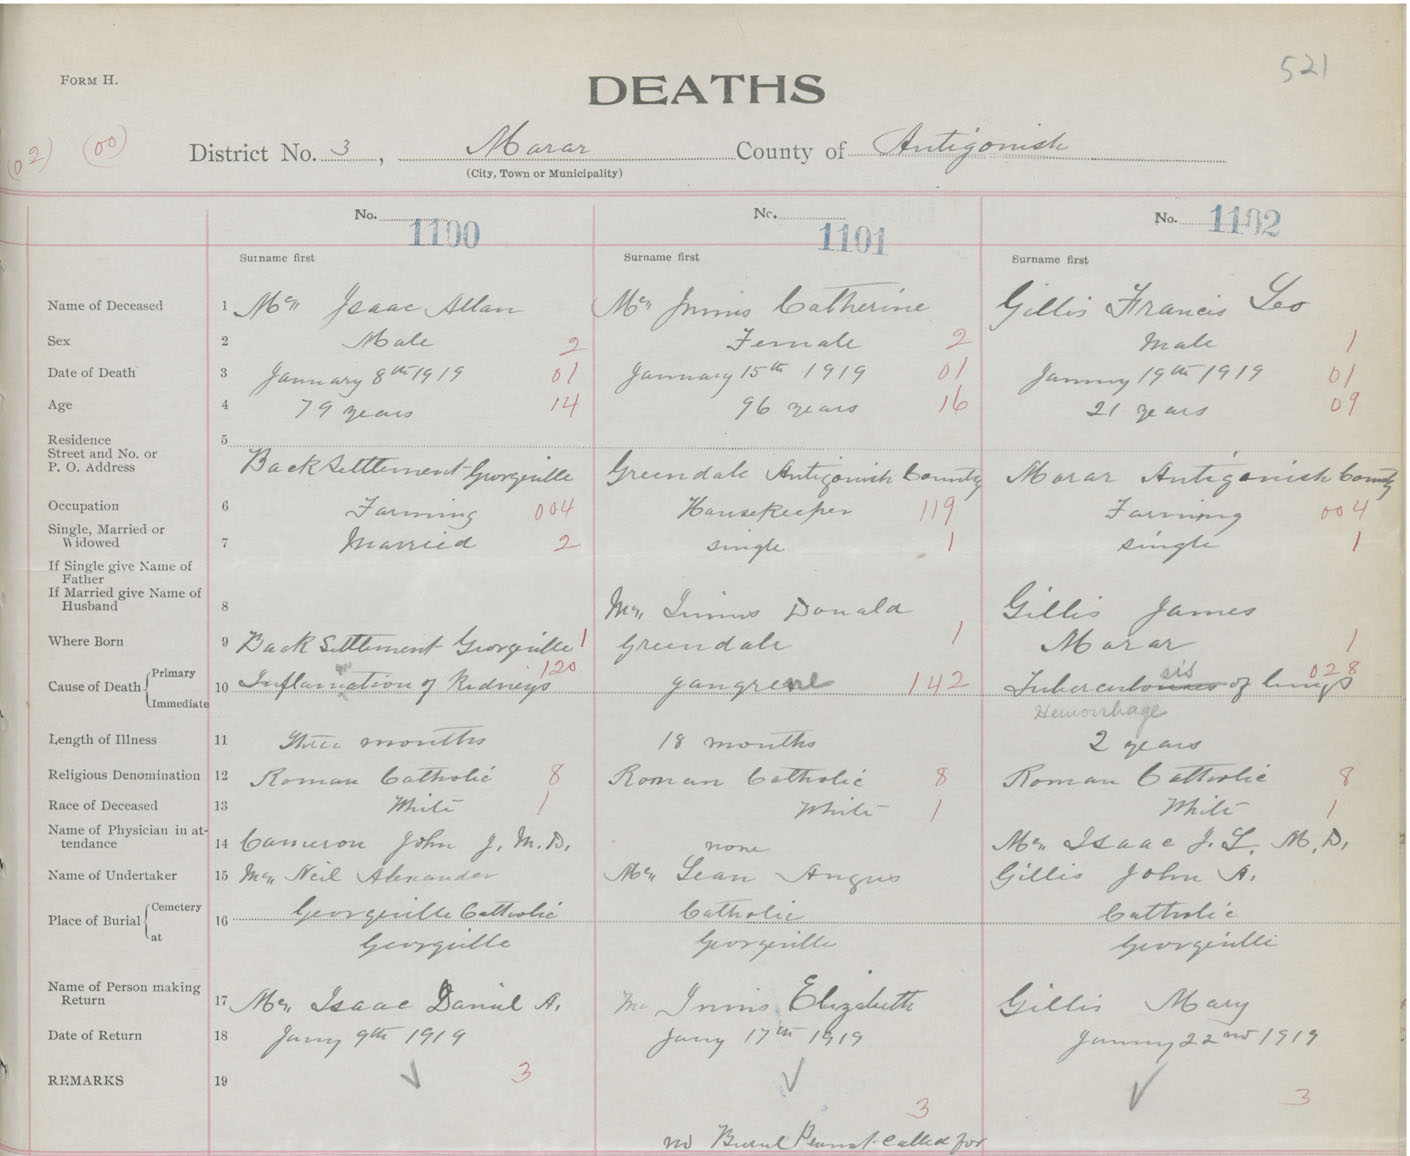 FORM H.
521
DEATHS
(02) (00)
District No. 3, Marar County of Antigonish
(City, Town or Municipality)
No. 1100 No. 1101 No. 1102
Surname first Surname first Surname first
Name of Deceased 1 Mc Isaac Allan Mc Innis Catherine Gillis Francis Leo
Sex 2 Male 2 Female 2 Male 1
Date of Death 3 January 8th 1919 01 January 15th 1919 01 January 19th 1919 01
Age 4 79 years 14 96 years 16 21 years 09
Residence 5
Street and No. or
P. O. Address Back Settlement Georgeville Greendale Antigonish County Marar Antigonish County
Occupation 6 Farming 004 Housekeeper 119 Farming 004
Single, Married or
Widowed 7 Married 2 single 1 single 1
If Single give Name of
Father
If Married give Name of
Husband 8 Mc Innis Donald Gillis James
Where Born 9 Back Settlement Georgeville 1 Greendale 1 Marar 1
Cause of Death Primary 10 Inflamation of Kidneys 120 gangrene 142 Tuberculosis of lungs 028
Immediate Hemorrhage
Length of Illness 11 three months 18 months 2 years
Religious Denomination 12 Roman Catholic 8 Roman Catholic 8 Roman Catholic 8
Race of Deceased 13 White 1 White 1 White 1
Name of Physician in at-
tendance 14 Cameron John J. M.D. none Mc Isaac J. L. M.D.
Name of Undertaker 15 Mc Neil Alexander Mc Lean Angus Gillis John A.
Place of Burial Cemetery 16 Georgeville Catholic Catholic Catholic
at Georgville Georgeville Georgeville
Name of Person making
Return 17 Mc Isaac Daniel A. Mc Innis Elizabeth Gillis Mary
Date of Return 18 Jany 9th 1919 Jany 17th 1919 January 22nd 1919
REMARKS 19 3 3 3
no Burial Permit called for